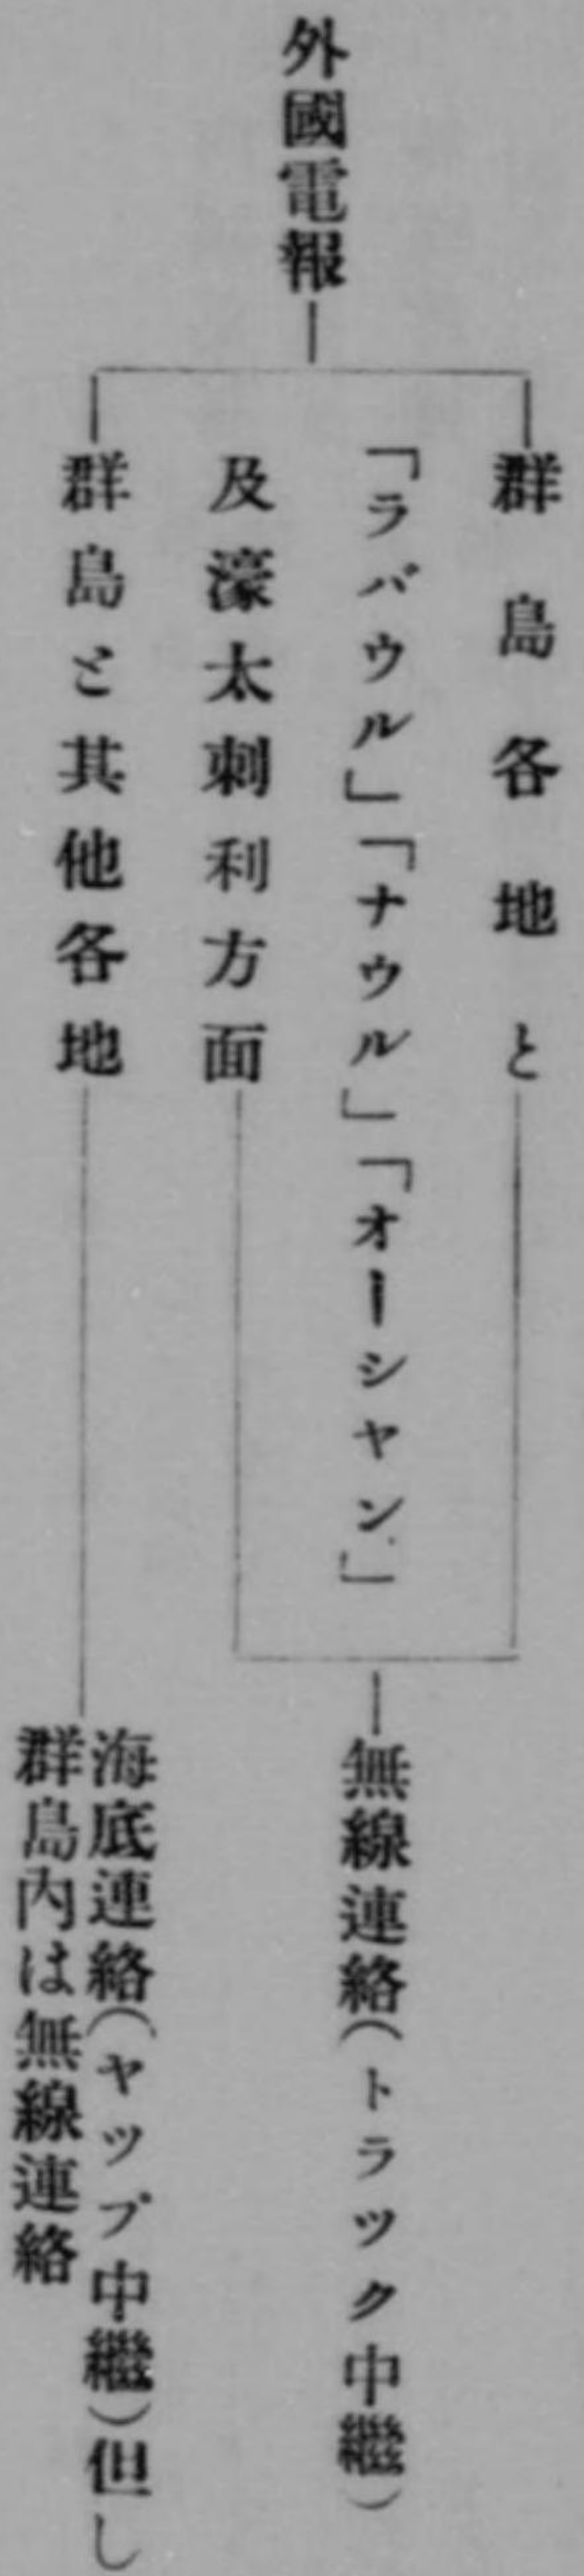 外國電報
群島各地と
「ラバウル」「ナウル」「オーシヤン」
及濠太剌利方面
無線連絡(トラツク中繼)
群島と其他各地
海底連絡(ヤツプ中繼)但し
群島内は無線連絡